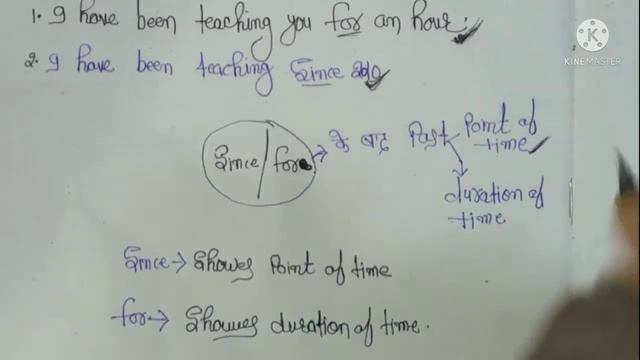 1. I have been teaching you for an hour.
KINEMASTER
2. I have been teaching Since
Since/for → के बाद Past Point of time
duration of time
Since → Shows Point of time
for → Shows duration of time.